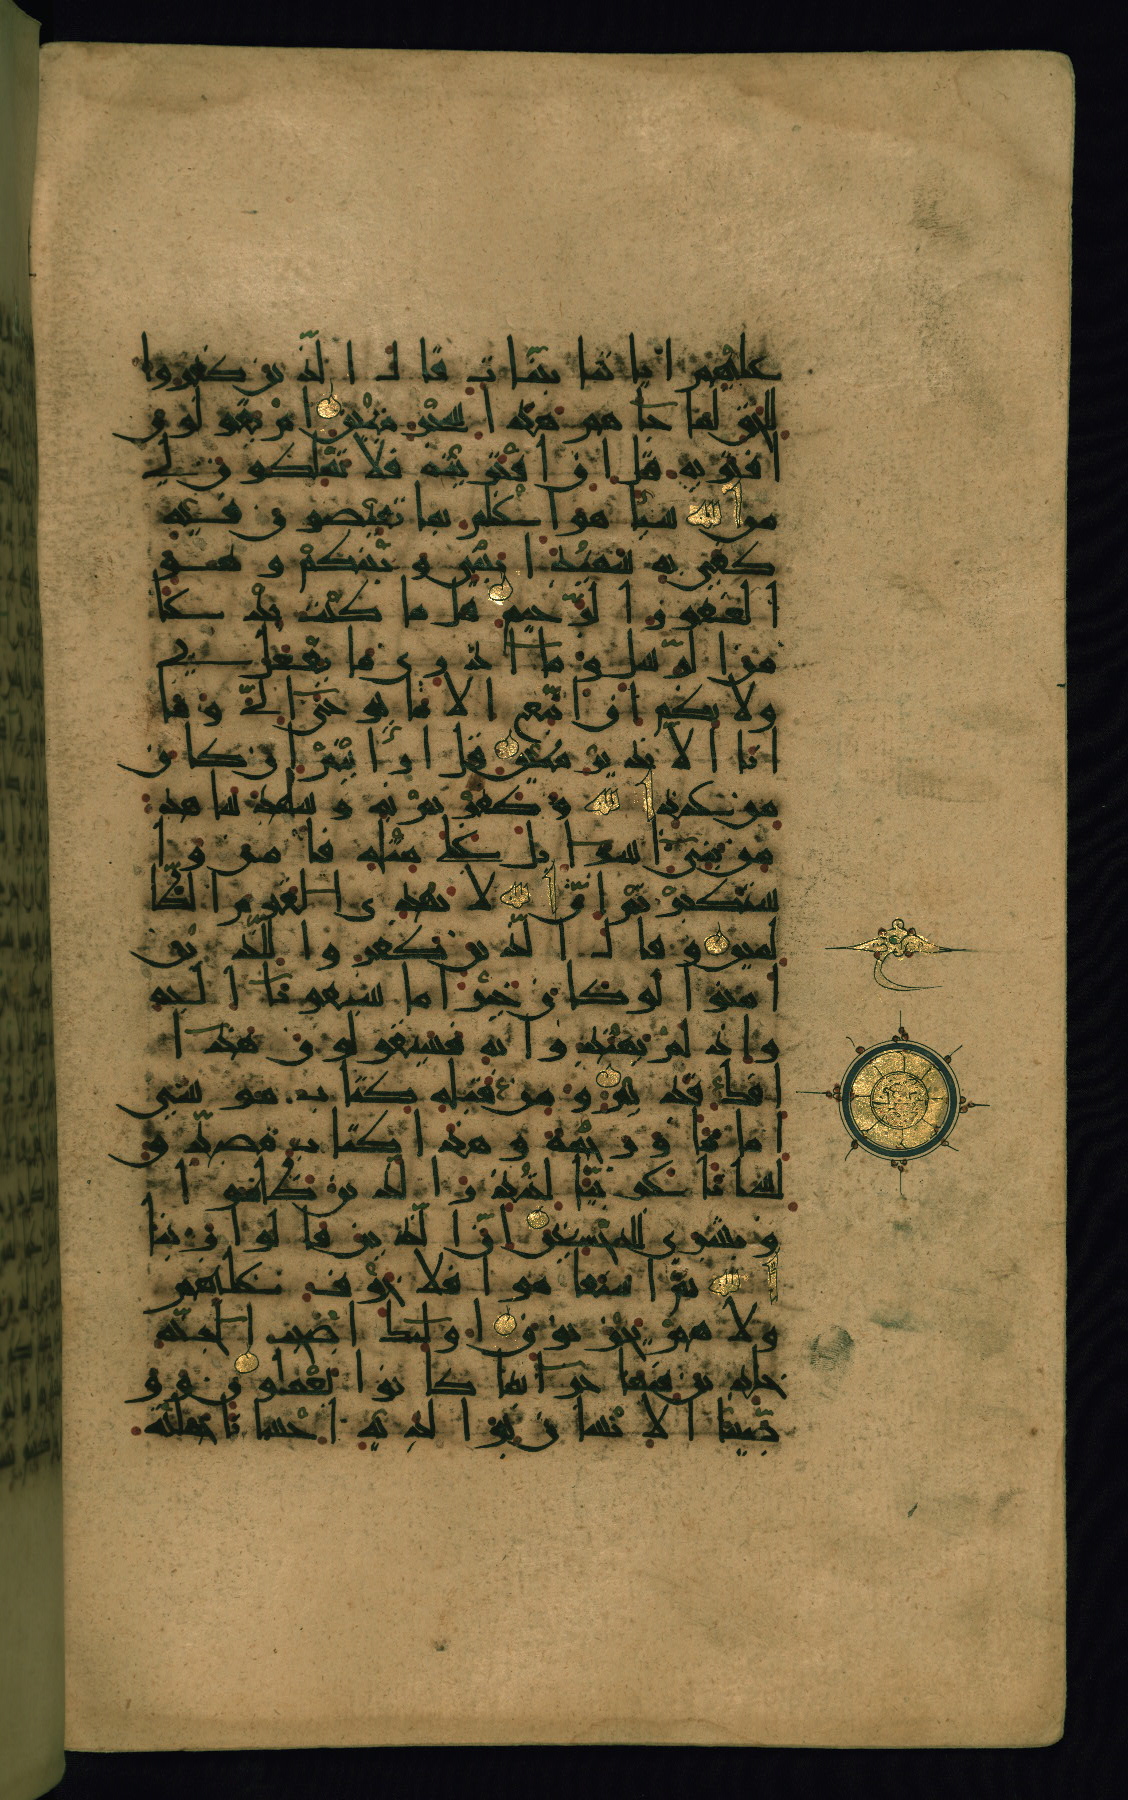 عليهم اياتنا بينات قال الذين كفروا
للحق لما جاهم هذا سحر مبين ام يقولون
افتريه قل ان افتريته فلا تملكون لي
من الله شيا هو اعلم بما تفيضون فيه
كفى به شهيدا بيني و بينكم و هو
الغفور الرحيم قل ما كنت بدعا
من الرسل وما ادري ما يفعل بي
ولا بكم ان اتبع الا ما يوحى الي وما
انا الا نذير مبين قل ارايتم ان كان
من عند الله و كفرتم به و شهد شاهد
من بني اسرايل على مثله فامن وا
ستكبرتم ان الله لا يهدي القوم الظا
لمين و قال الذين كفروا للذين
امنوا لو كان خيرا ما سبقونا اليه
واذ لم يهتدوا به فسيقولون هذا
افك قديم و من قبله كتاب موسى
اماما و رحمة و هذا كتاب مصدق
لسانا عربيا لينذر الذين ظلموا
و بشرى للمحسنين ان الذين قالوا ربنا
الله ثم استقاموا فلا خوف عليهم
ولا هم يحزنون اوليك اصحب الجنة
خلدين فيها جزا بما كانوا يعملون وو
صينا الانسان بوالديه احسانا حملته